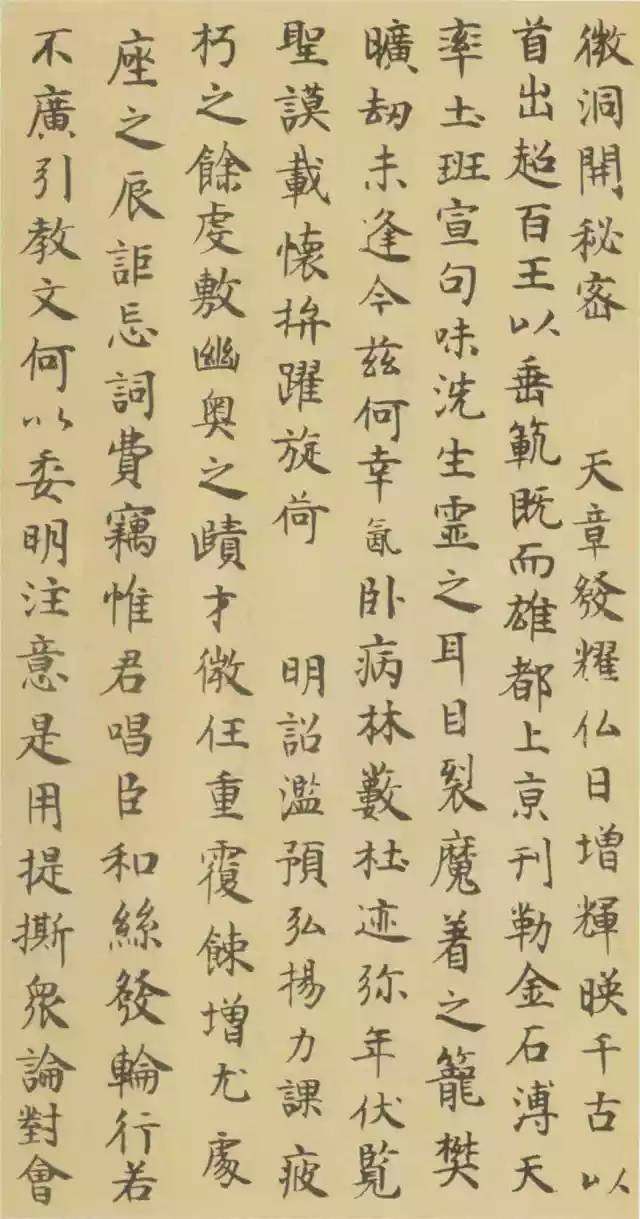 微洞開秘密　天章發耀仏日增輝暎千古以
首出超百王以垂範既而雄都上京刊勒金石溥天
率土班宣句味洗生靈之耳目裂魔着之籠樊
曠劫未逢今兹何幸氤卧病林藪杜迹弥年伏覧
聖謨載懷抃躍旋荷　明詔濫預弘揚力課疲
朽之餘虔敷幽奥之賾才微任重覆餗增尤處
座之辰詎忘詞費竊惟君唱臣和絲發輪行若
不廣引教文何以委明注意是用提撕衆論對會